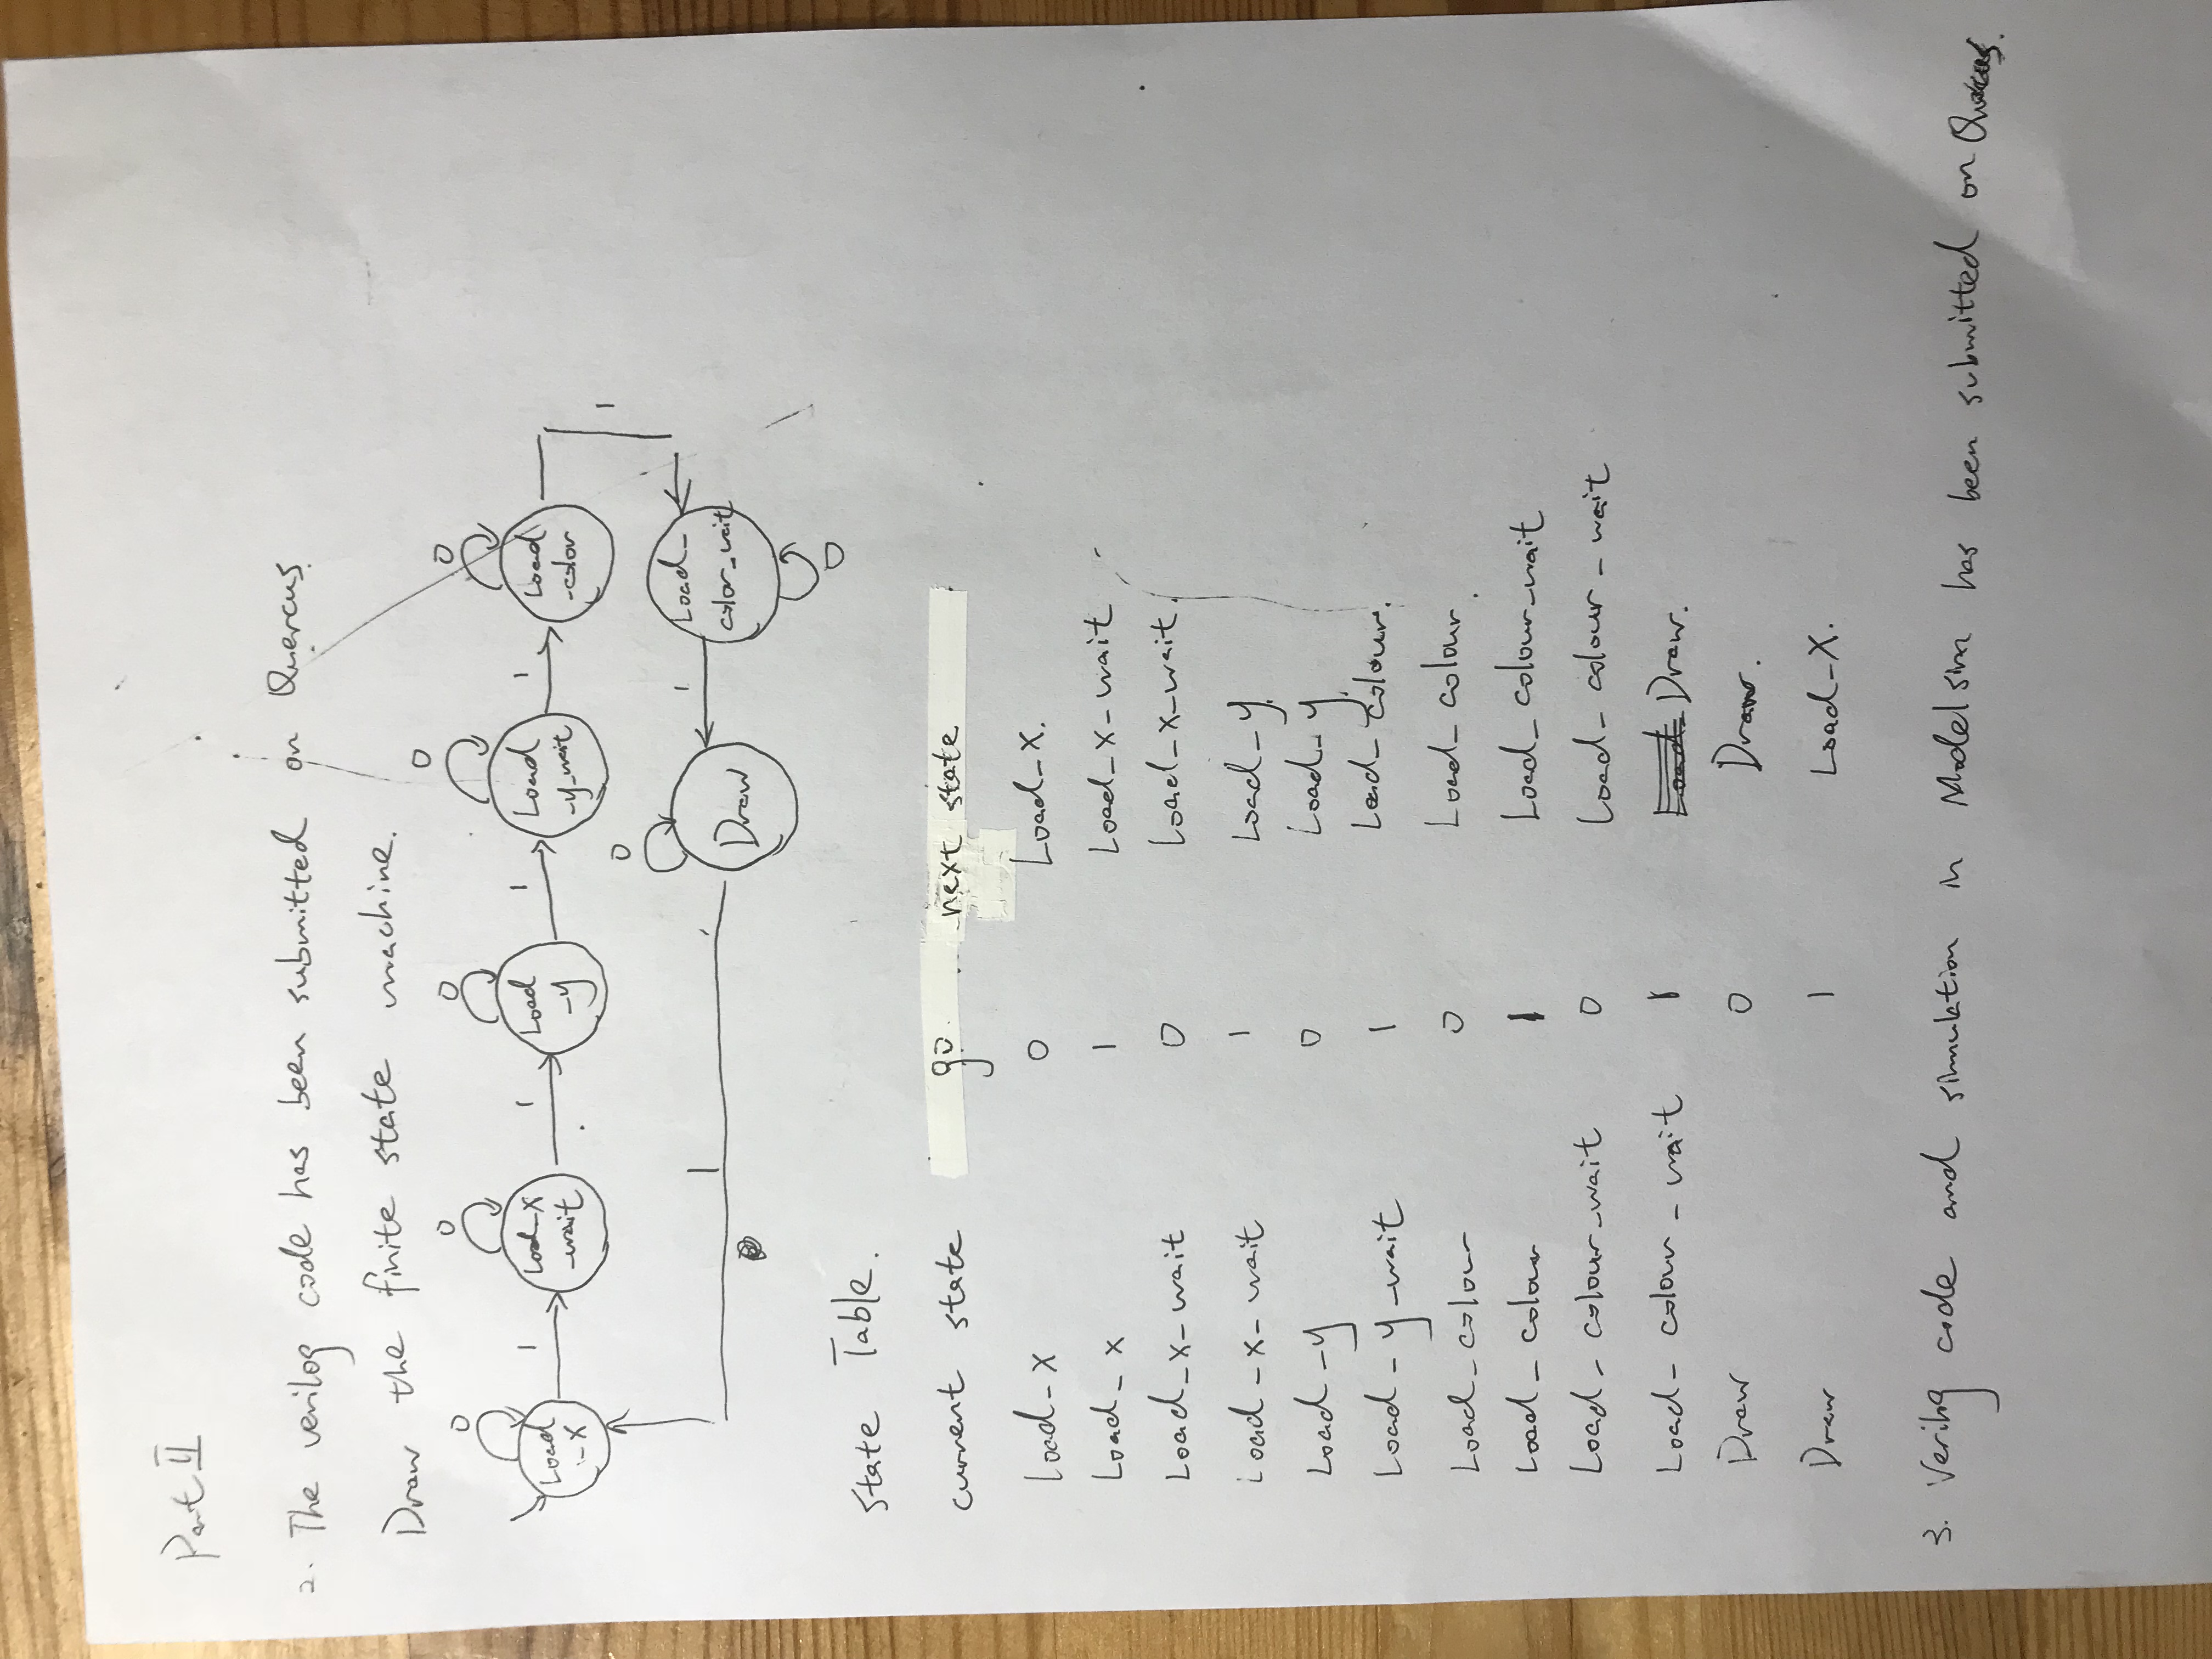 Part II
2. The verilog code has been submitted on Quercus.
Draw the finite state machine.
0 0 0 0 0
1 1 1 1
Load_X Load_X_wait Load_y Load_y_wait Load_color
1
0
1 1
Draw Load_color_wait
0
State Table.
current state go. next state
Load_X 0 Load_X.
Load_x 1 Load_X_wait
Load_x_wait 0 Load_x_wait.
Load_x_wait 1 Load_y.
Load_y 0 Load_y
Load_y_wait 1 Load_colour.
Load_colour 0 Load_colour
Load_colour 1 Load_colour_wait
Load_colour_wait 0 Load_colour_wait
Load_colour_wait 1 Load Draw.
Draw 0 Draw.
Draw 1 Load_X.
3. Verilog code and simulation in Modelsim has been submitted on Quercus.